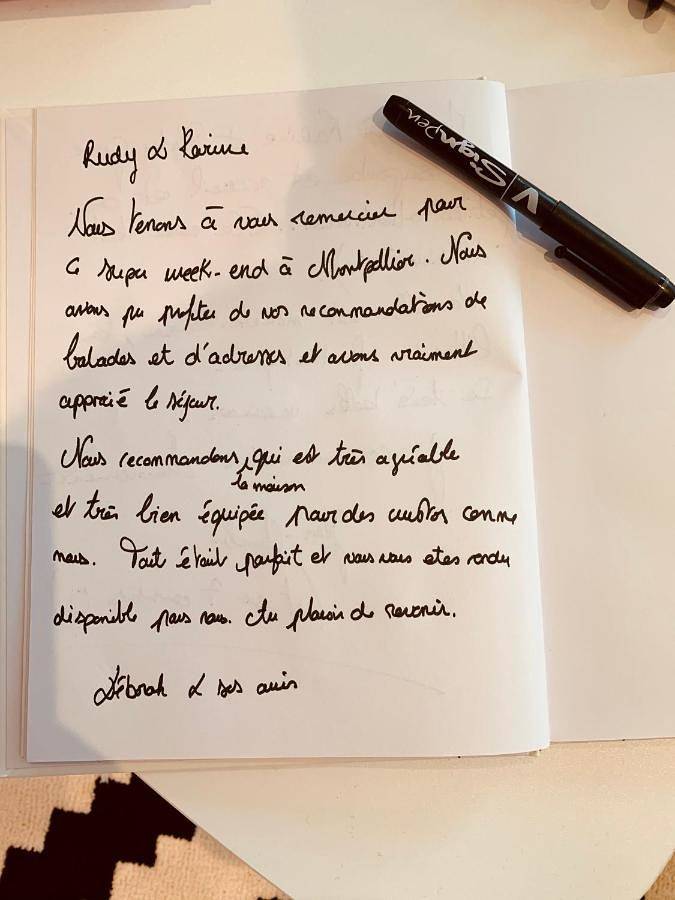 Rudy & Karine
Nous tenons à vous remercier pour
ce super week-end à Montpellier. Nous
avons pu profiter de vos recommandations de
balades et d'adresses et avons vraiment
apprécié le séjour.
Nous recommandons la maison, qui est très agréable
et très bien équipée pour des comme
nous. Tout était parfait et vous vous etes rendu
disponible pour nous. Au plaisir de revenir.
Déborah & ses amis
V Sign Pen